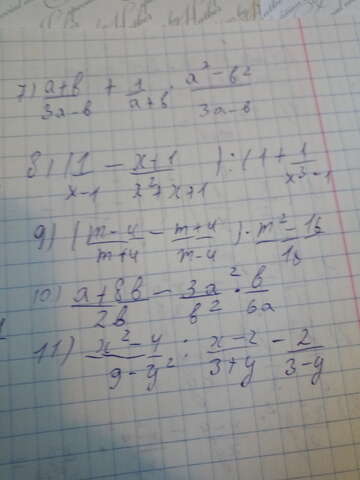 7) (a+b)/(3a-b) + 1/(a+b) · (a²-b²)/(3a-b)
8) (1/(x-1) - (x+1)/(x²+x+1)) : (1+1/(x³-1)
9) ((m-4)/(m+4) - (m+4)/(m-4)) · (m²-16)/16
10) (a+8b)/(2b) - (3a²)/(b²) · b/(6a)
11) (x²-4)/(9-y²) : (x-2)/(3+y) - 2/(3-y)